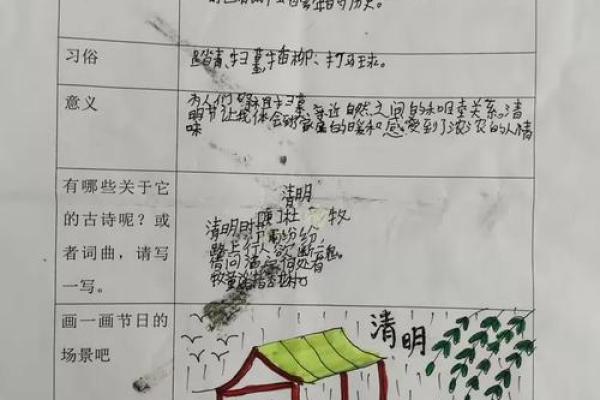 习俗
踏青、扫墓、插柳、打马球。
意义
为人们 扫墓、亲近自然之间的和谐关系。清
明节让我体会到家 的暖和感受到了浓浓的人情
味
有哪些关于它
的古诗呢？或
者词曲，请写
一写。
清明
杜 牧
清明时节雨纷纷
路上行人欲断魂。
借问酒家何处有
牧童
画一画节日的
场景吧
清明